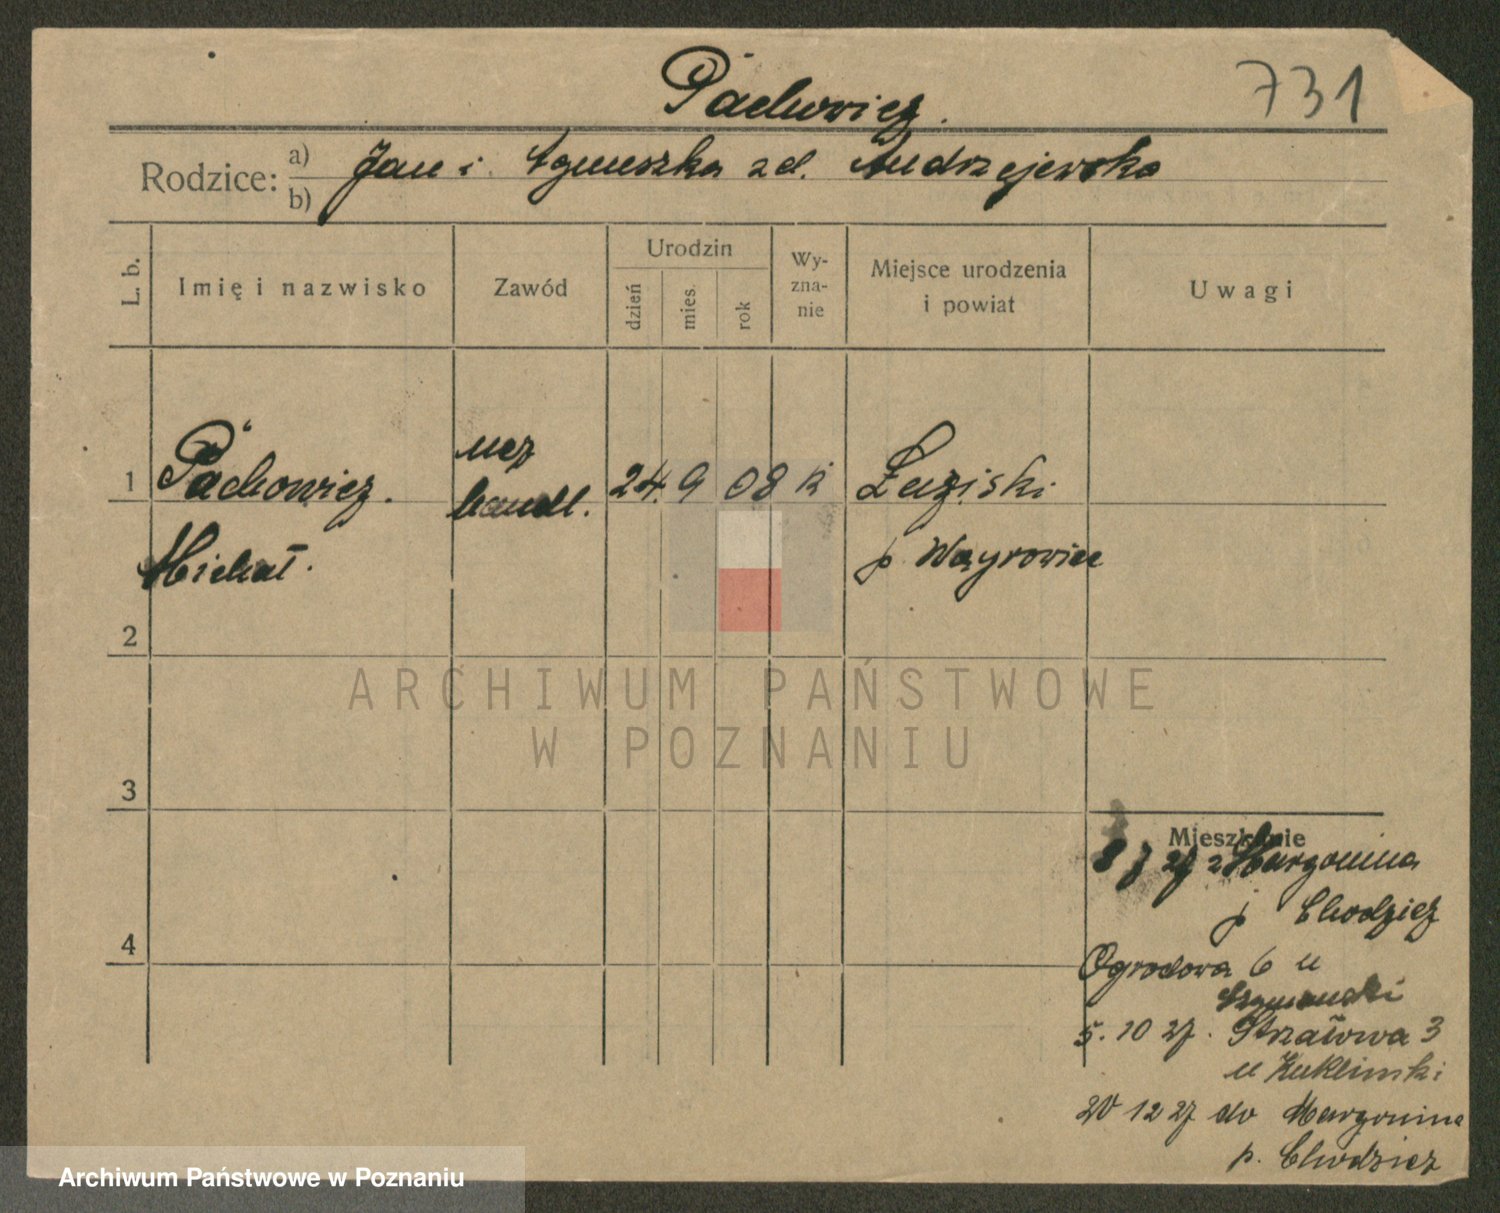 Pachowicz.
731
Rodzice: a) Jan i Agnieszka zd. Andrzejewska
b)
L. b.
Imię i nazwisko
Zawód
Urodzin
dzień
mies.
rok
Wy-
zna-
nie
Miejsce urodzenia
i powiat
Uwagi
1 Pachowicz. ucz 24. 9 08 k Łaziski
Michał. handl. p. Wągrowiec
2
3
4
Mieszkanie
27 z Margonina
p Chodzież
Ogrodowa 6 u
Szymanski
5. 10 27. Strzałowa 3
u Kuklinski
20 12 27 do Margonina
p. Chodzież
ARCHIWUM PAŃSTWOWE
W POZNANIU
Archiwum Państwowe w Poznaniu